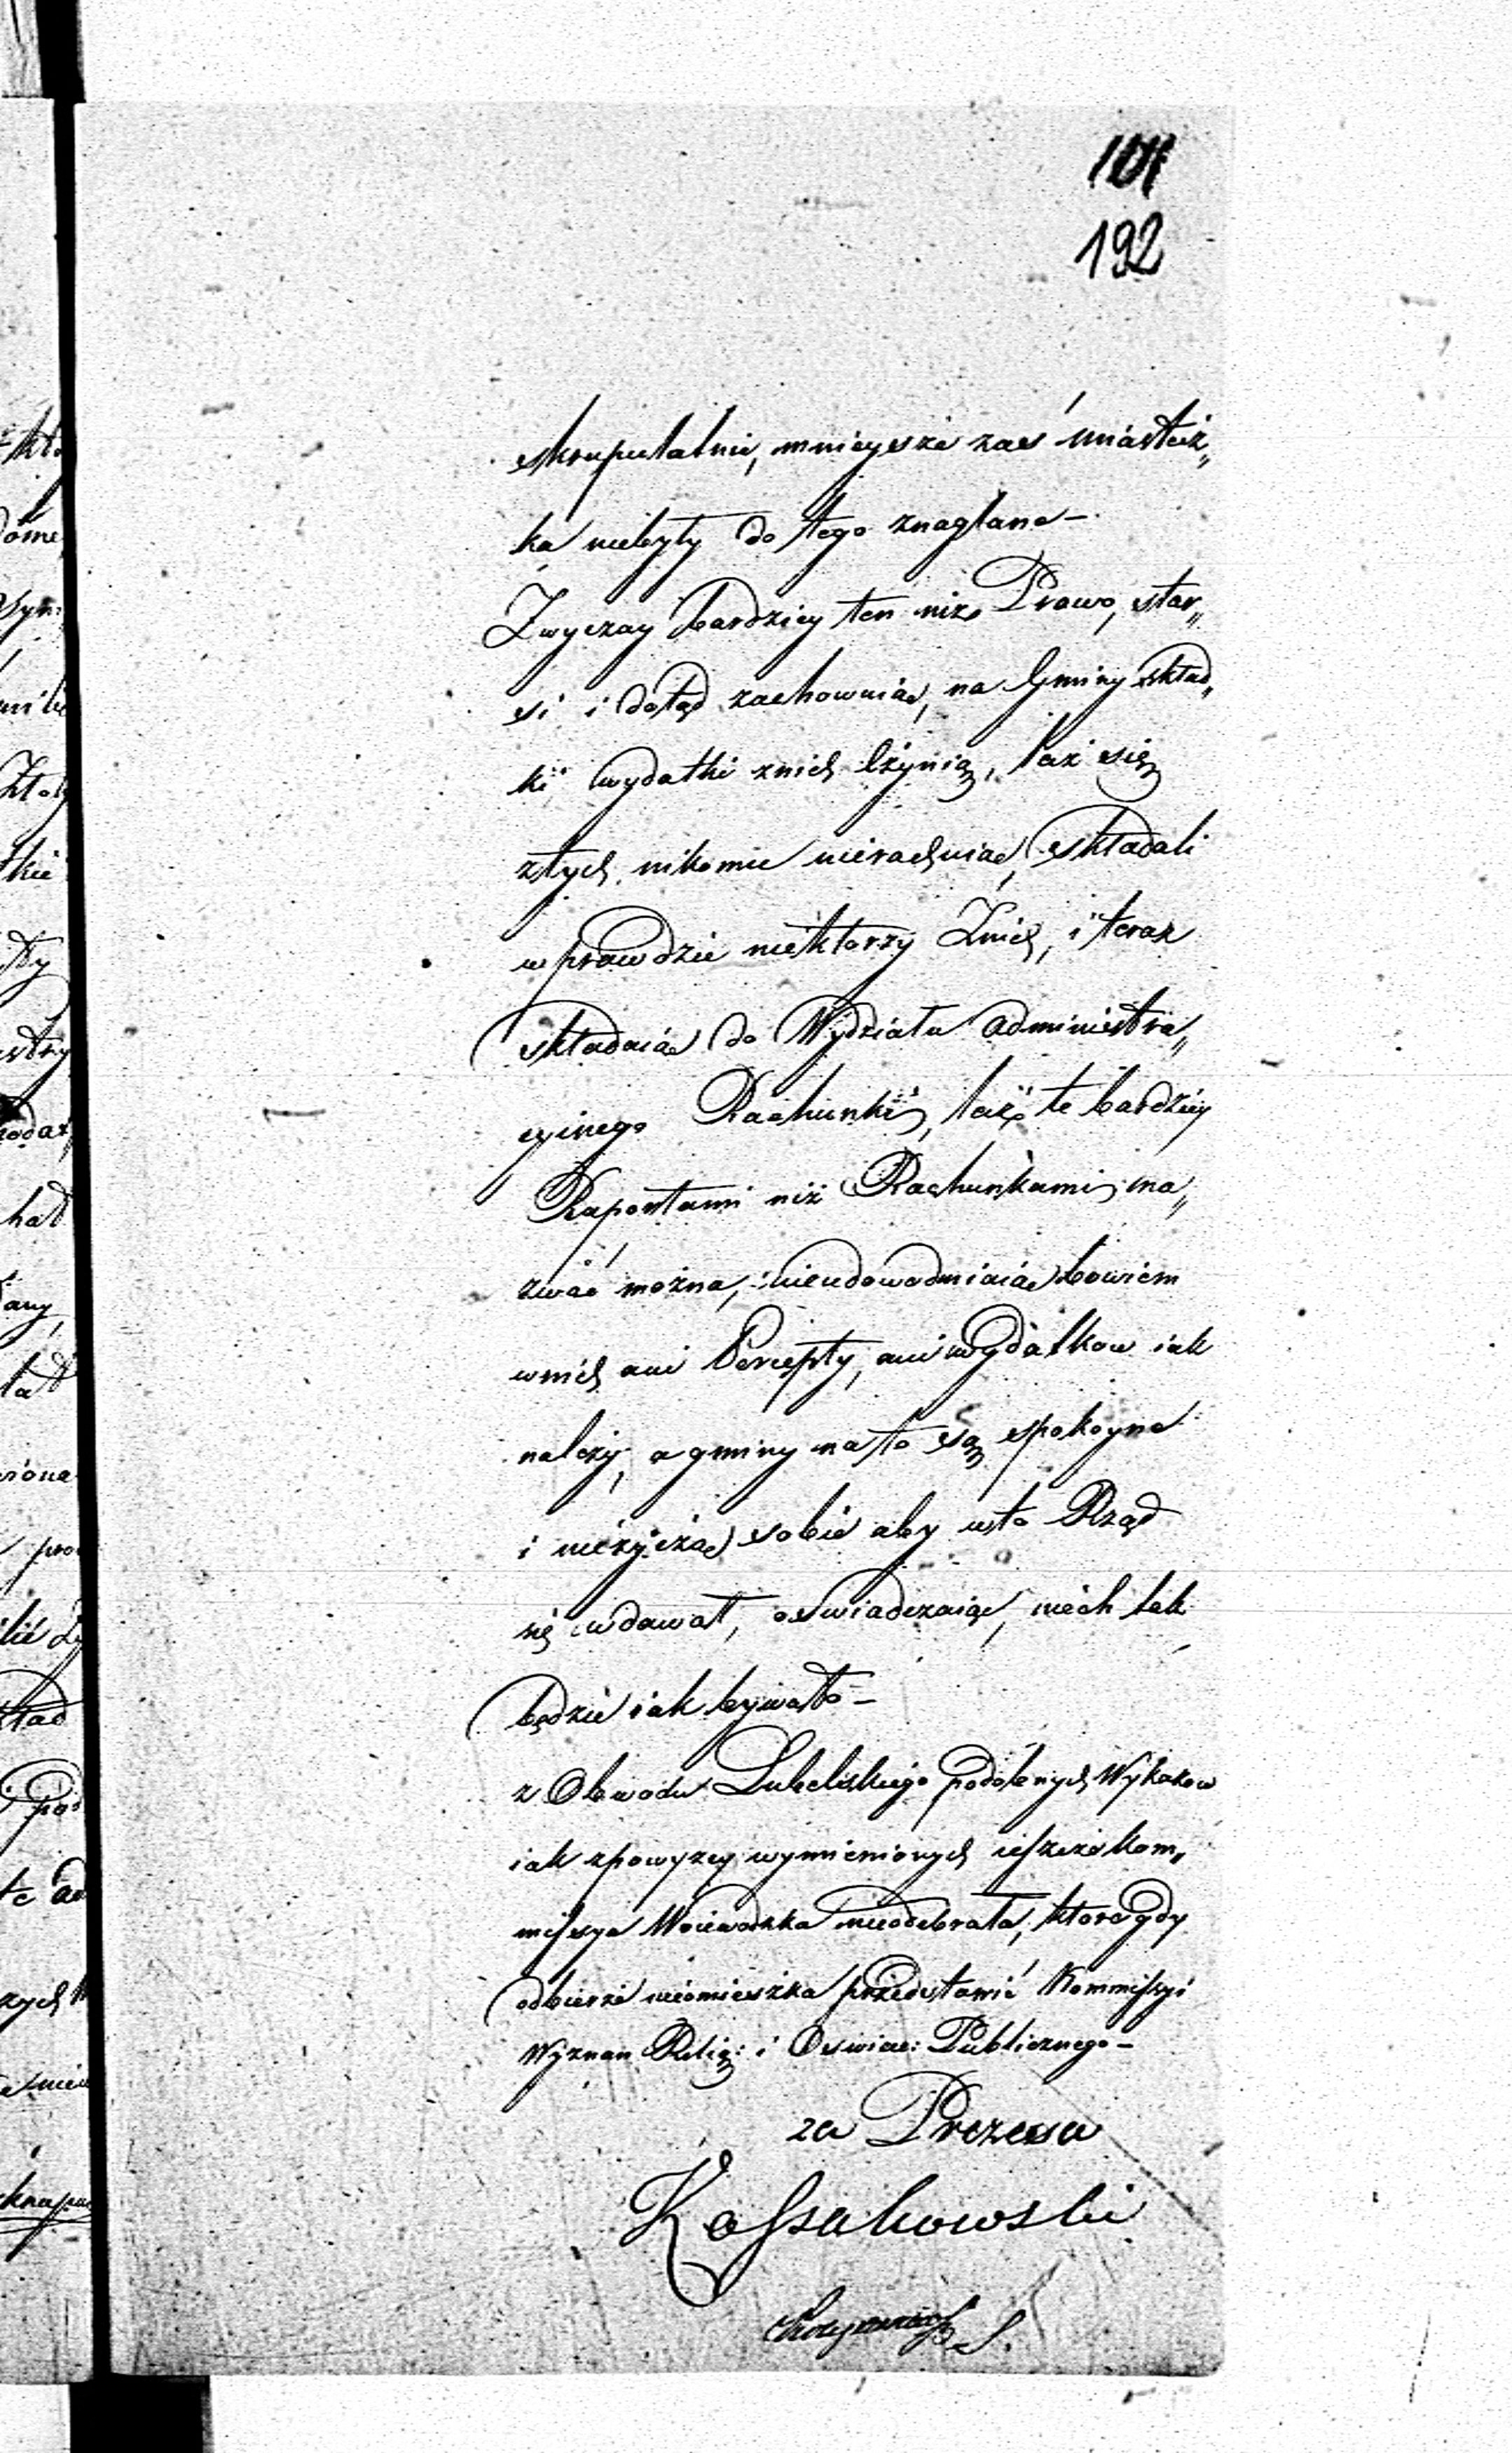 101
192
skrupulatnie, mnieysze zaś miastecz„
ka niebyły do tego znaglane –
Zwyczay bardziey ten niż Prawo, star„
si i dotąd zachowuiąc, na Gminy skład„
ki wydatki znich czynią, lecz się
ztych nikomu nierachuiąc, składali
wprawdzie niektorzy Znich, i teraz
składaią do Wydziału Administra„
cyinego Rachunki, lecz te bardziey
Raportami niż Rachunkami na„
zwać można, nieudowadniaiąc bowiem
wnich ani Percepty, ani wydatkow iak
należy, a gminy na to są spokoyne
i nieżycząc sobie aby wto Rząd
się wdawał, oswiadczaią, niech tak
będzie iak bywało –
z Obwodu Lubelskiego podobnych Wykazow
iak zpowyzey wymienionych ieszcze Kom„
missya Woiewodzka nieodebrała, ktore gdy
odbierze nieomieszka przedstawić Kommissyi
Wyznan Relig: i Oswiec: Publicznego –
za Prezesa
Kossakowski